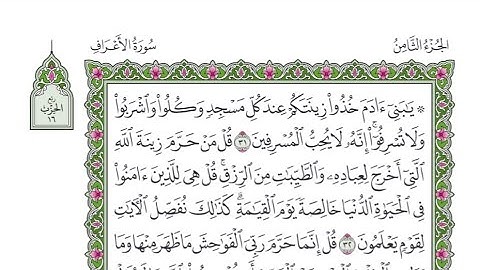 الجُزْءُ الثَّامِنُ
سُورَةُ الأَعْرَافِ
رُبع
الحِزْبُ
١٦
۞ يَٰبَنِيٓ ءَادَمَ خُذُواْ زِينَتَكُمۡ عِندَ كُلِّ مَسۡجِدٖ وَكُلُواْ وَٱشۡرَبُواْ
وَلَا تُسۡرِفُوٓاْۚ إِنَّهُۥ لَا يُحِبُّ ٱلۡمُسۡرِفِينَ ٣١ قُلۡ مَنۡ حَرَّمَ زِينَةَ ٱللَّهِ
ٱلَّتِيٓ أَخۡرَجَ لِعِبَادِهِۦ وَٱلطَّيِّبَٰتِ مِنَ ٱلرِّزۡقِۚ قُلۡ هِيَ لِلَّذِينَ ءَامَنُواْ
فِي ٱلۡحَيَوٰةِ ٱلدُّنۡيَا خَالِصَةٗ يَوۡمَ ٱلۡقِيَٰمَةِۗ كَذَٰلِكَ نُفَصِّلُ ٱلۡأٓيَٰتِ
لِقَوۡمٖ يَعۡلَمُونَ ٣٢ قُلۡ إِنَّمَا حَرَّمَ رَبِّيَ ٱلۡفَوَٰحِشَ مَا ظَهَرَ مِنۡهَا وَمَا